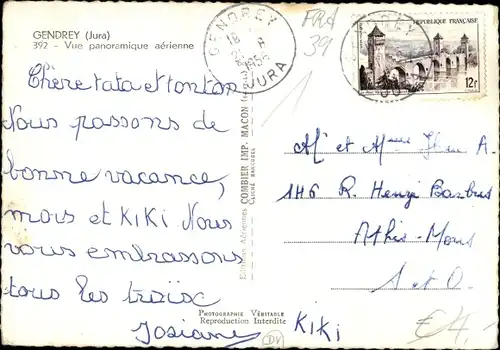 GENDREY (Jura)
392 - Vue panoramique aérienne
Chère tata et tonton
Nous passons de
bonne vacance,
mois et KIKI Nous
vous embrassons
tous les troix
Josiane
Editions Aériennes COMBIER IMP. MACON
PHOTOGRAPHIE VÉRITABLE
Reproduction Interdite
GENDREY
18
1956
JURA
FRA
39
1
GENDREY
RÉPUBLIQUE FRANÇAISE
12F
Mr et Mme A.
146 R. Henri Barbus
Athis-Mons
S et O.
KIKI
€4,-
DV